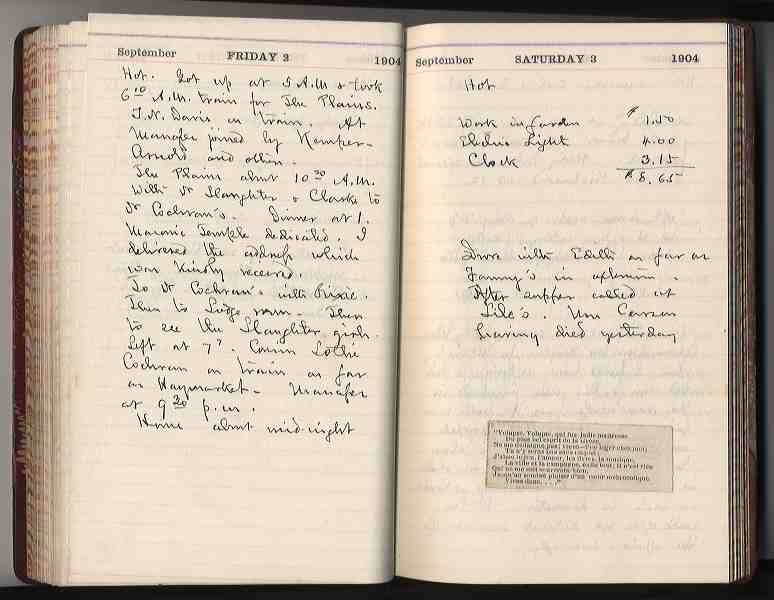 September FRIDAY 2 1904
Hot. Got up at 5 A.M & took
6 10 A.M. train for The Plains.
T.N. Davis on train. At
Manassas joined by Kemper-
Arnold and others.
The Plains about 10 30 A.M.
With Dr Slaughter & Clarke to
Dr Cochran's. Dinner at 1.
Masonic Temple dedicated. I
delivered the address which
was kindly received.
To Dr Cochran's with Rixie.
Then to Lodge room. Then
to see the Slaughter girls.
Left at 7 Cousin Lottie
Cochran on train as far
as Haymarket - Manassas
at 9 20 p.m.
Home about mid-night
September SATURDAY 3 1904
Hot
Work in Garden $ 1.50
Electric Light 4.00
Clock 3.15
$ 8.65
Drove with Edith as far as
Fanny's in afternoon.
After supper called at
Lile's. Mrs Carson
having died yesterday
"Volupté, Volupté, qui fus jadis maîtresse
Du plus bel esprit de la Grèce,
Ne me dédaigne pas; viens-t'en loger chez moi;
Tu n'y seras pas sans emploi:
J'aime le jeu, l'amour, les livres, la musique,
La ville et la campagne, enfin tout; il n'est rien
Qui ne me soit souverain bien,
Jusqu'au sombre plaisir d'un cœur mélancolique.
Viens donc. . . ."